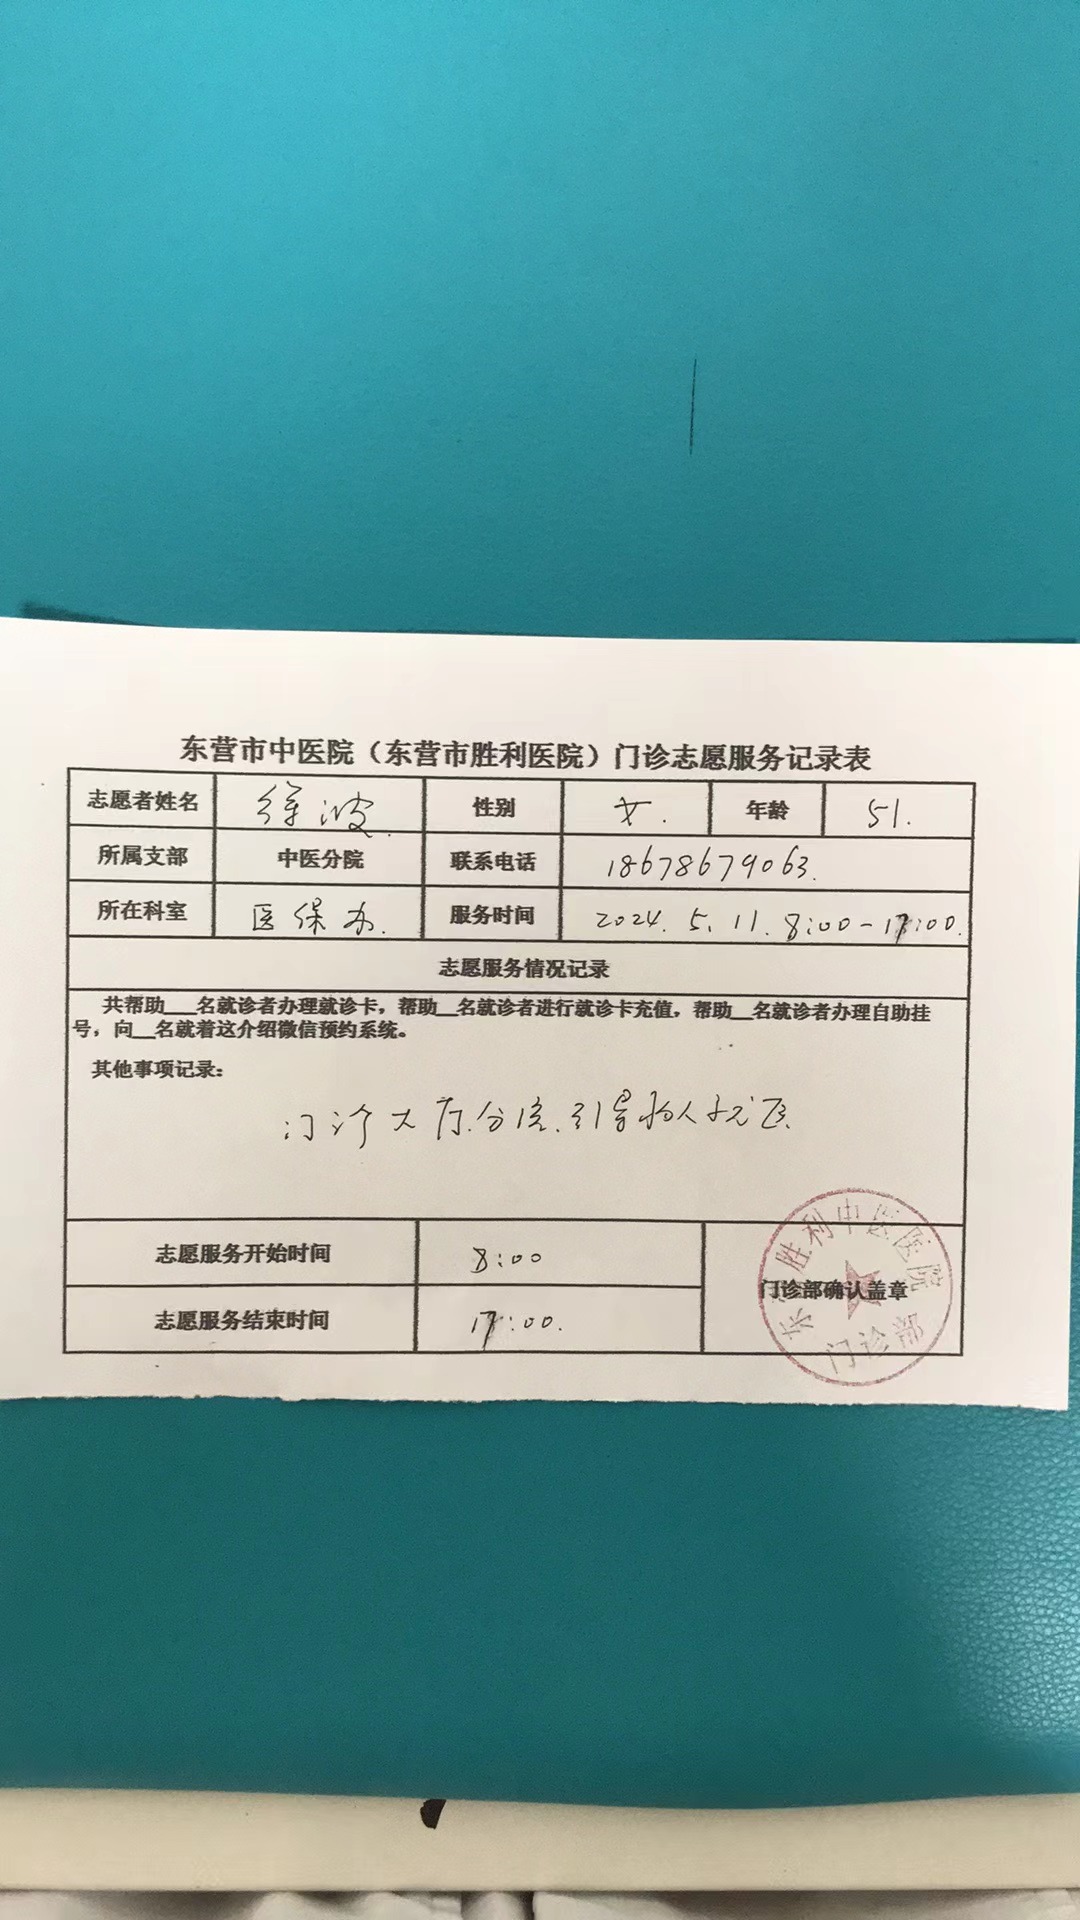 东营市中医院（东营市胜利医院）门诊志愿服务记录表
志愿者姓名 徐波 性别 女. 年龄 51.
所属支部 中医分院 联系电话 18678679063.
所在科室 医保办. 服务时间 2024.5.11.8:00-17:00.
志愿服务情况记录
共帮助__名就诊者办理就诊卡，帮助__名就诊者进行就诊卡充值，帮助__名就诊者办理自助挂
号，向__名就着这介绍微信预约系统。
其他事项记录：
门诊大厅分流.引导病人就医
志愿服务开始时间 8:00
志愿服务结束时间 17:00.
门诊部确认盖章
胜利中医医院
门诊部